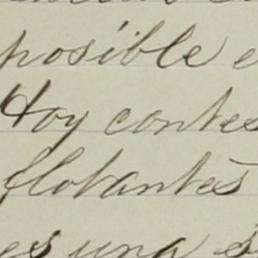 posible
Hoy contes
flotantes
es una s